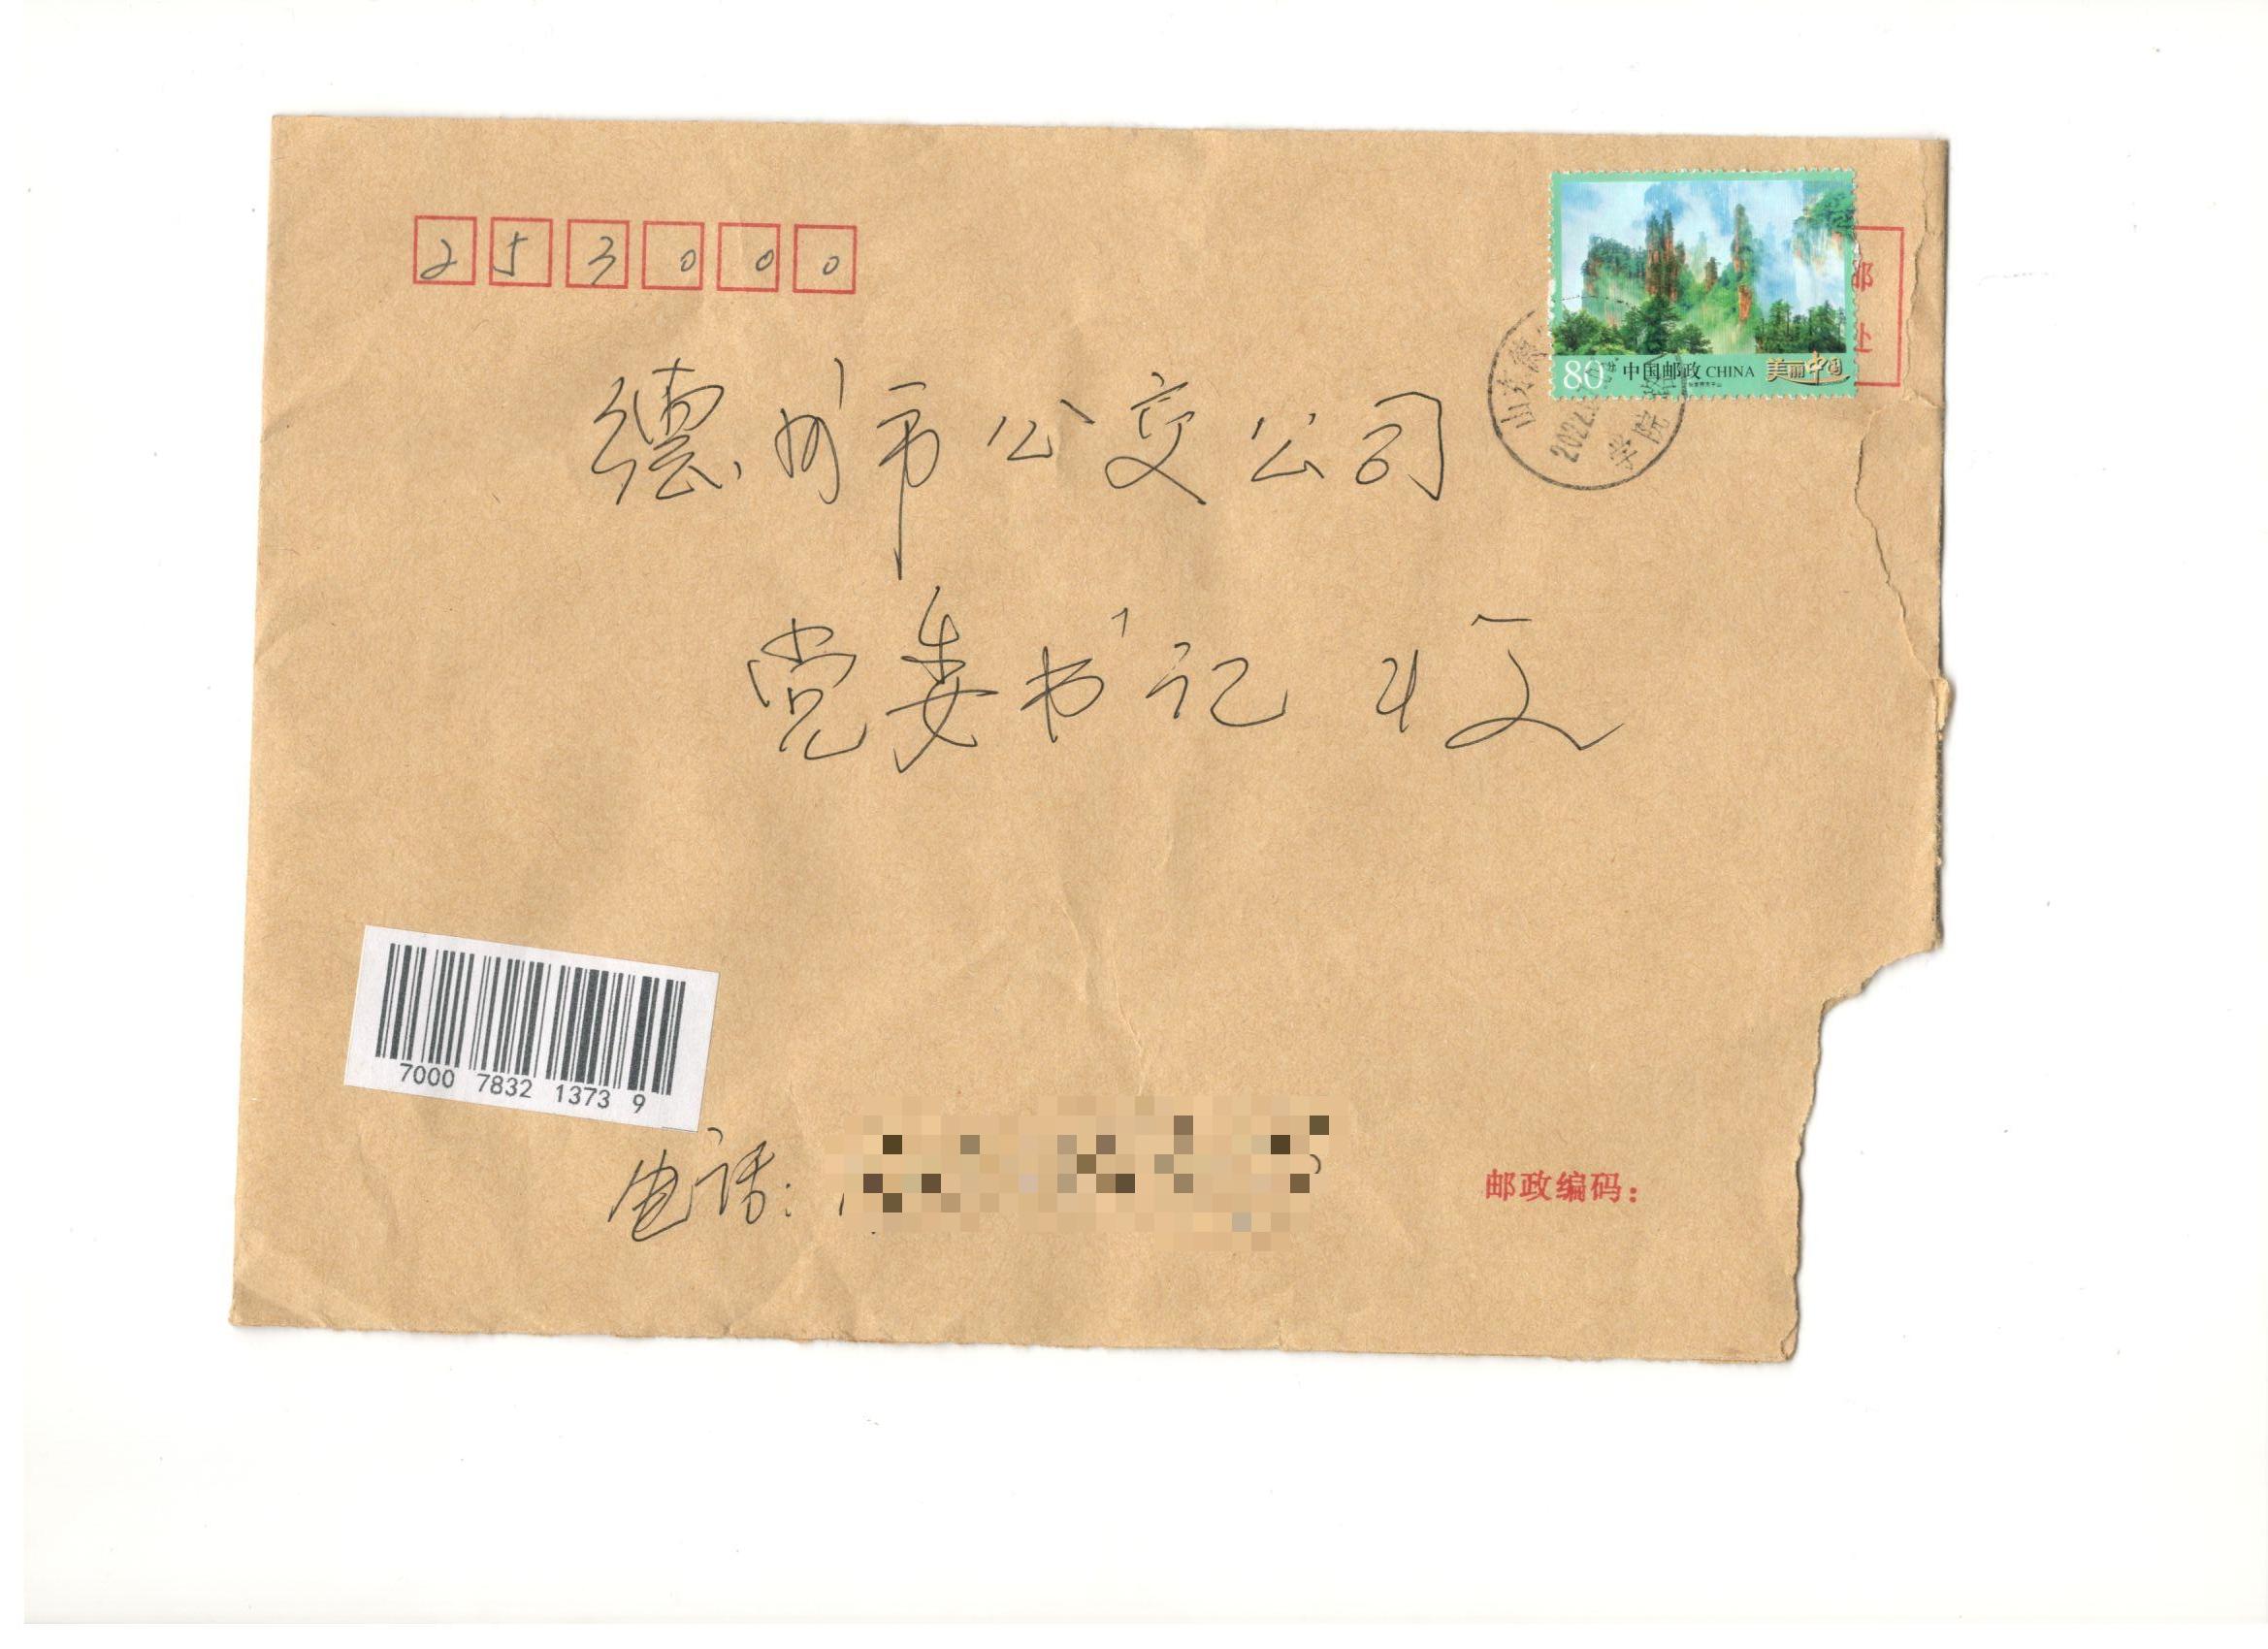 253000
80分 中国邮政 CHINA 美丽中国
山东德
2022
学院
德州市公交公司
党委书记 收
7000 7832 1373 9
电话:
邮政编码: